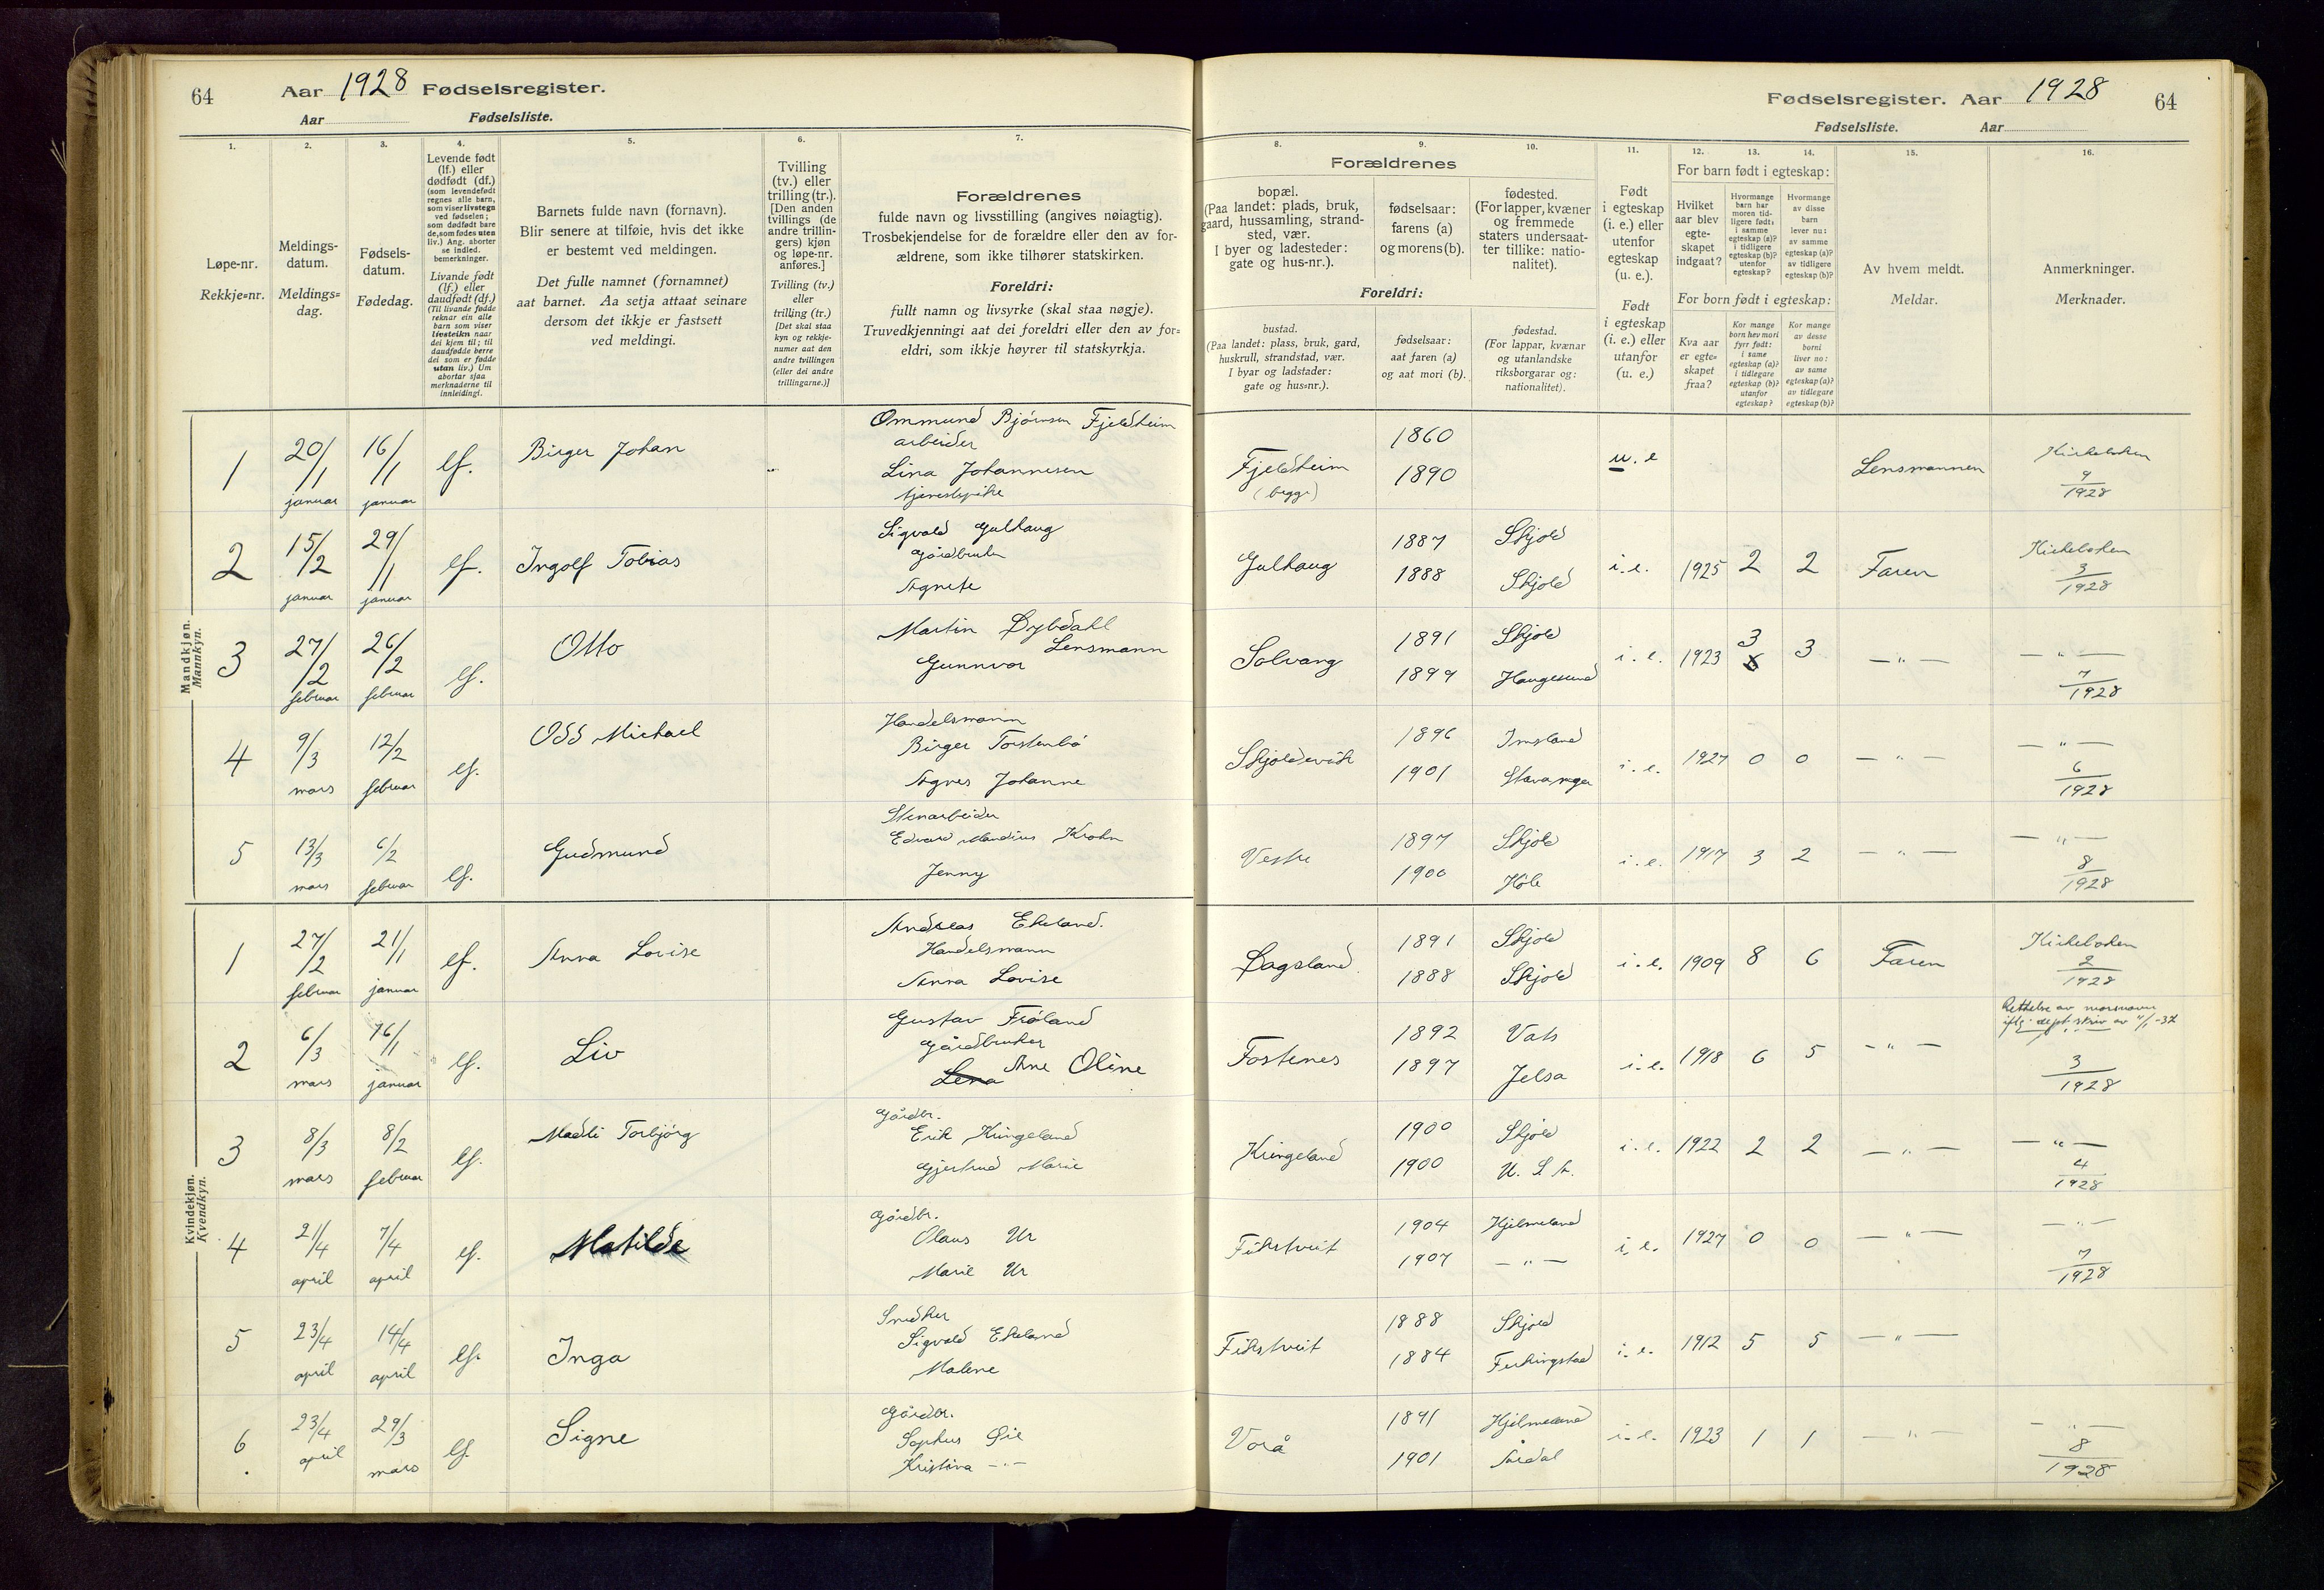 64 Aar 1928 Fødselsregister.
Aar Fødselsliste.
Fødselsregister. Aar 1928 64
Fødselsliste. Aar
1. 2. 3. 4. 5. 6. 7. 8. 9. 10. 11. 12. 13. 14. 15. 16.
Løpe-nr.
Rekkje=nr.
Meldings-
datum.
Meldings=
dag.
Fødsels-
datum.
Fødedag.
Levende født
(lf.) eller
dødfødt (df.)
(som levendefødt
regnes alle barn,
som viser livstegn
ved fødselen;
som dødfødt bare
de, som fødes uten
liv.) Ang. aborter
se indled.
bemerkninger.
Livande født
(lf.) eller
daudfødt (df.)
(Til livande fødde
reknar ein alle
barn som viser
livsteikn naar
dei kjem til; til
daudfødde berre
dei som er fødde
utan liv.) Um
abortar sjaa
merknaderne til
innleidingi.
Barnets fulde navn (fornavn).
Blir senere at tilføie, hvis det ikke
er bestemt ved meldingen.
Det fulle namnet (fornamnet)
aat barnet. Aa setja attaat seinare
dersom det ikkje er fastsett
ved meldingi.
Tvilling
(tv.) eller
trilling (tr.).
[Den anden
tvillings (de
andre trillin-
gers) kjøn
og løpe-nr.
anføres.]
Tvilling (tv.)
eller
trilling (tr.)
[Det skal staa
kyn og rekkje-
numer aat den
andre tvillingen
(eller dei andre
trillingarne.)]
Forældrenes
fulde navn og livsstilling (angives nøiagtig).
Trosbekjendelse for de forældre eller den av for-
ældrene, som ikke tilhører statskirken.
Foreldri:
fullt namn og livsyrke (skal staa nøgje).
Truvedkjenningi aat dei foreldri eller den av for=
eldri, som ikkje høyrer til statskyrkja.
Forældrenes
bopæl.
(Paa landet: plads, bruk,
gaard, hussamling, strand-
sted, vær.
I byer og ladesteder:
gate og hus-nr.).
fødselsaar:
farens (a)
og morens (b).
fødested.
(For lapper, kvæner
og fremmede
staters undersaat-
ter tillike: natio-
nalitet).
Foreldri:
bustad.
(Paa landet: plass, bruk, gard,
huskrull, strandstad, vær.
I byar og ladstader:
gate og hus=nr.).
fødselsaar:
aat faren (a)
og aat mori (b).
fødestad.
(For lappar, kvænar
og utanlandske
riksborgarar og:
nationalitet).
Født
i egteskap
(i. e.) eller
utenfor
egteskap
(u. e.).
Født
i egteskap
(i. e.) eller
utanfor
(u. e.)
For barn født i egteskap:
Hvilket
aar blev
egte-
skapet
indgaat?
Hvormange
barn har
moren tid-
ligere født:
i samme
egteskap (a)?
i tidligere
egteskap (b)?
utenfor
egteskap?
Hvormange
av disse
barn
lever nu:
av samme
egteskap (a)?
av tidligere
egteskap (b)?
For born født i egteskap:
Kva aar
er egte=
skapet
fraa?
Kor mange
born hev mori
fyrr født:
i same
egteskap (a)?
i tidlegare
egteskap (b)?
utanfor
egteskap?
Kor mange
av desse
borni
liver no:
av same
egteskap (a)?
av tidlegare
egteskap (b)?
Av hvem meldt.
Meldar.
Anmerkninger.
Merknader.
Mandkjøn.
Mannkyn.
1 20/1 januar 16/1 januar lf. Birger Johan
Ommund Bjørnsen Fjeldheim
arbeider
Lina Johannesen
tjenestepike
Fjeldheim (begge) 1860 1890 u. e Lensmannen Kirkeboken 9/1928
2 15/2 januar 29/1 januar lf. Ingolf Tobias
Sigvald Gulhaug
Gårdbruker
Agnete
Gulhaug 1887 1888 Skjold Skjold i. e. 1925 2 2 Faren Kirkeboken 3/1928
3 27/2 februar 26/2 februar lf. Otto
Martin Dybdahl
Lensmann
Gunnvor
Solvang 1891 1899 Skjold Haugesund i. e. 1923 3 3 — " — — " — 7/1928
4 9/3 mars 12/2 februar lf. Odd Michael
Handelsmann
Birger Torstenbø
Agnes Johanne
Skjoldevik 1896 1901 Imsland Stavanger i. e. 1927 0 0 — " — — " — 6/1928
5 13/3 mars 6/2 februar lf. Gudmund
Stenarbeider
Edvard Mandius Krohn
Jenny
Vestre 1897 1900 Skjold Høle i. e. 1917 3 2 — " — — " — 8/1928
Kvindekjøn.
Kvendkyn.
1 27/2 februar 21/1 januar lf. Anna Lovise
Andreas Ekeland.
Handelsmann
Anna Lovise
Dagsland 1891 1888 Skjold Skjold i. e. 1909 8 6 Faren Kirkeboken 2/1928
2 6/3 mars 16/1 januar lf. Liv
Gustav Frøland
Gårdbruker
Lena Ane Oline
Fostenes 1892 1897 Vats Jelsa i. e. 1918 6 5 — " —
Rettelse av morsnavn
iflg. dept. skriv av 11/1-37
3/1928
3 8/3 mars 8/2 februar lf. Madli Torbjørg
Gårdbr.
Erik Kringeland
Gjertrud Marie
Kringeland 1900 1900 Skjold U. S. A. i. e. 1922 2 2 — " — — " — 4/1928
4 21/4 april 7/4 april lf. Matilde
Gårdbr.
Olaus Ur
Marie Ur
Fikstveit 1904 1907 Hjelmeland — " — i. e. 1927 0 0 — " — — " — 7/1928
5 23/4 april 14/4 april lf. Inga
Snedker
Sigvald Ekeland
Malene
Fikstveit 1888 1884 Skjold Ferkingstad i. e. 1912 5 5 — " —
6 23/4 april 29/3 mars lf. Signe
Gårdbr.
Sophus Øie
Kristina — " —
Vorå 1891 1901 Hjelmeland Årdal i. e. 1923 1 1 — " — — " — 8/1928